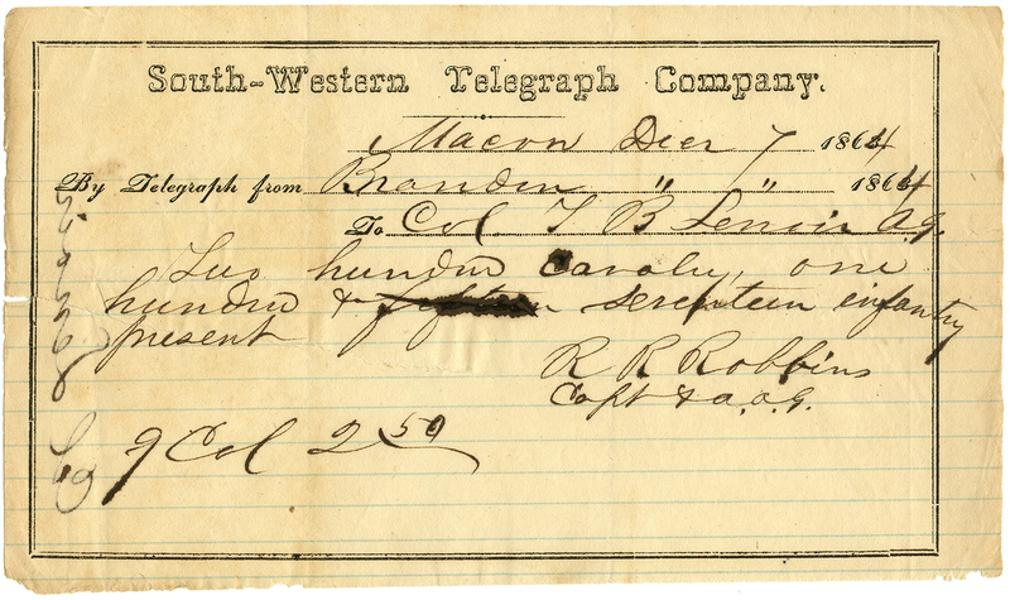 South-Western Telegraph Company.
Macon Decr 7 1864
By Telegraph from Brandon " " 1864
To Col. T B Lenoir A.G.
Two hundred Cavalry, one
hundred & seventeen infantry
present
R R Robbins
Capt & a.a.g.
9 Col 2 50